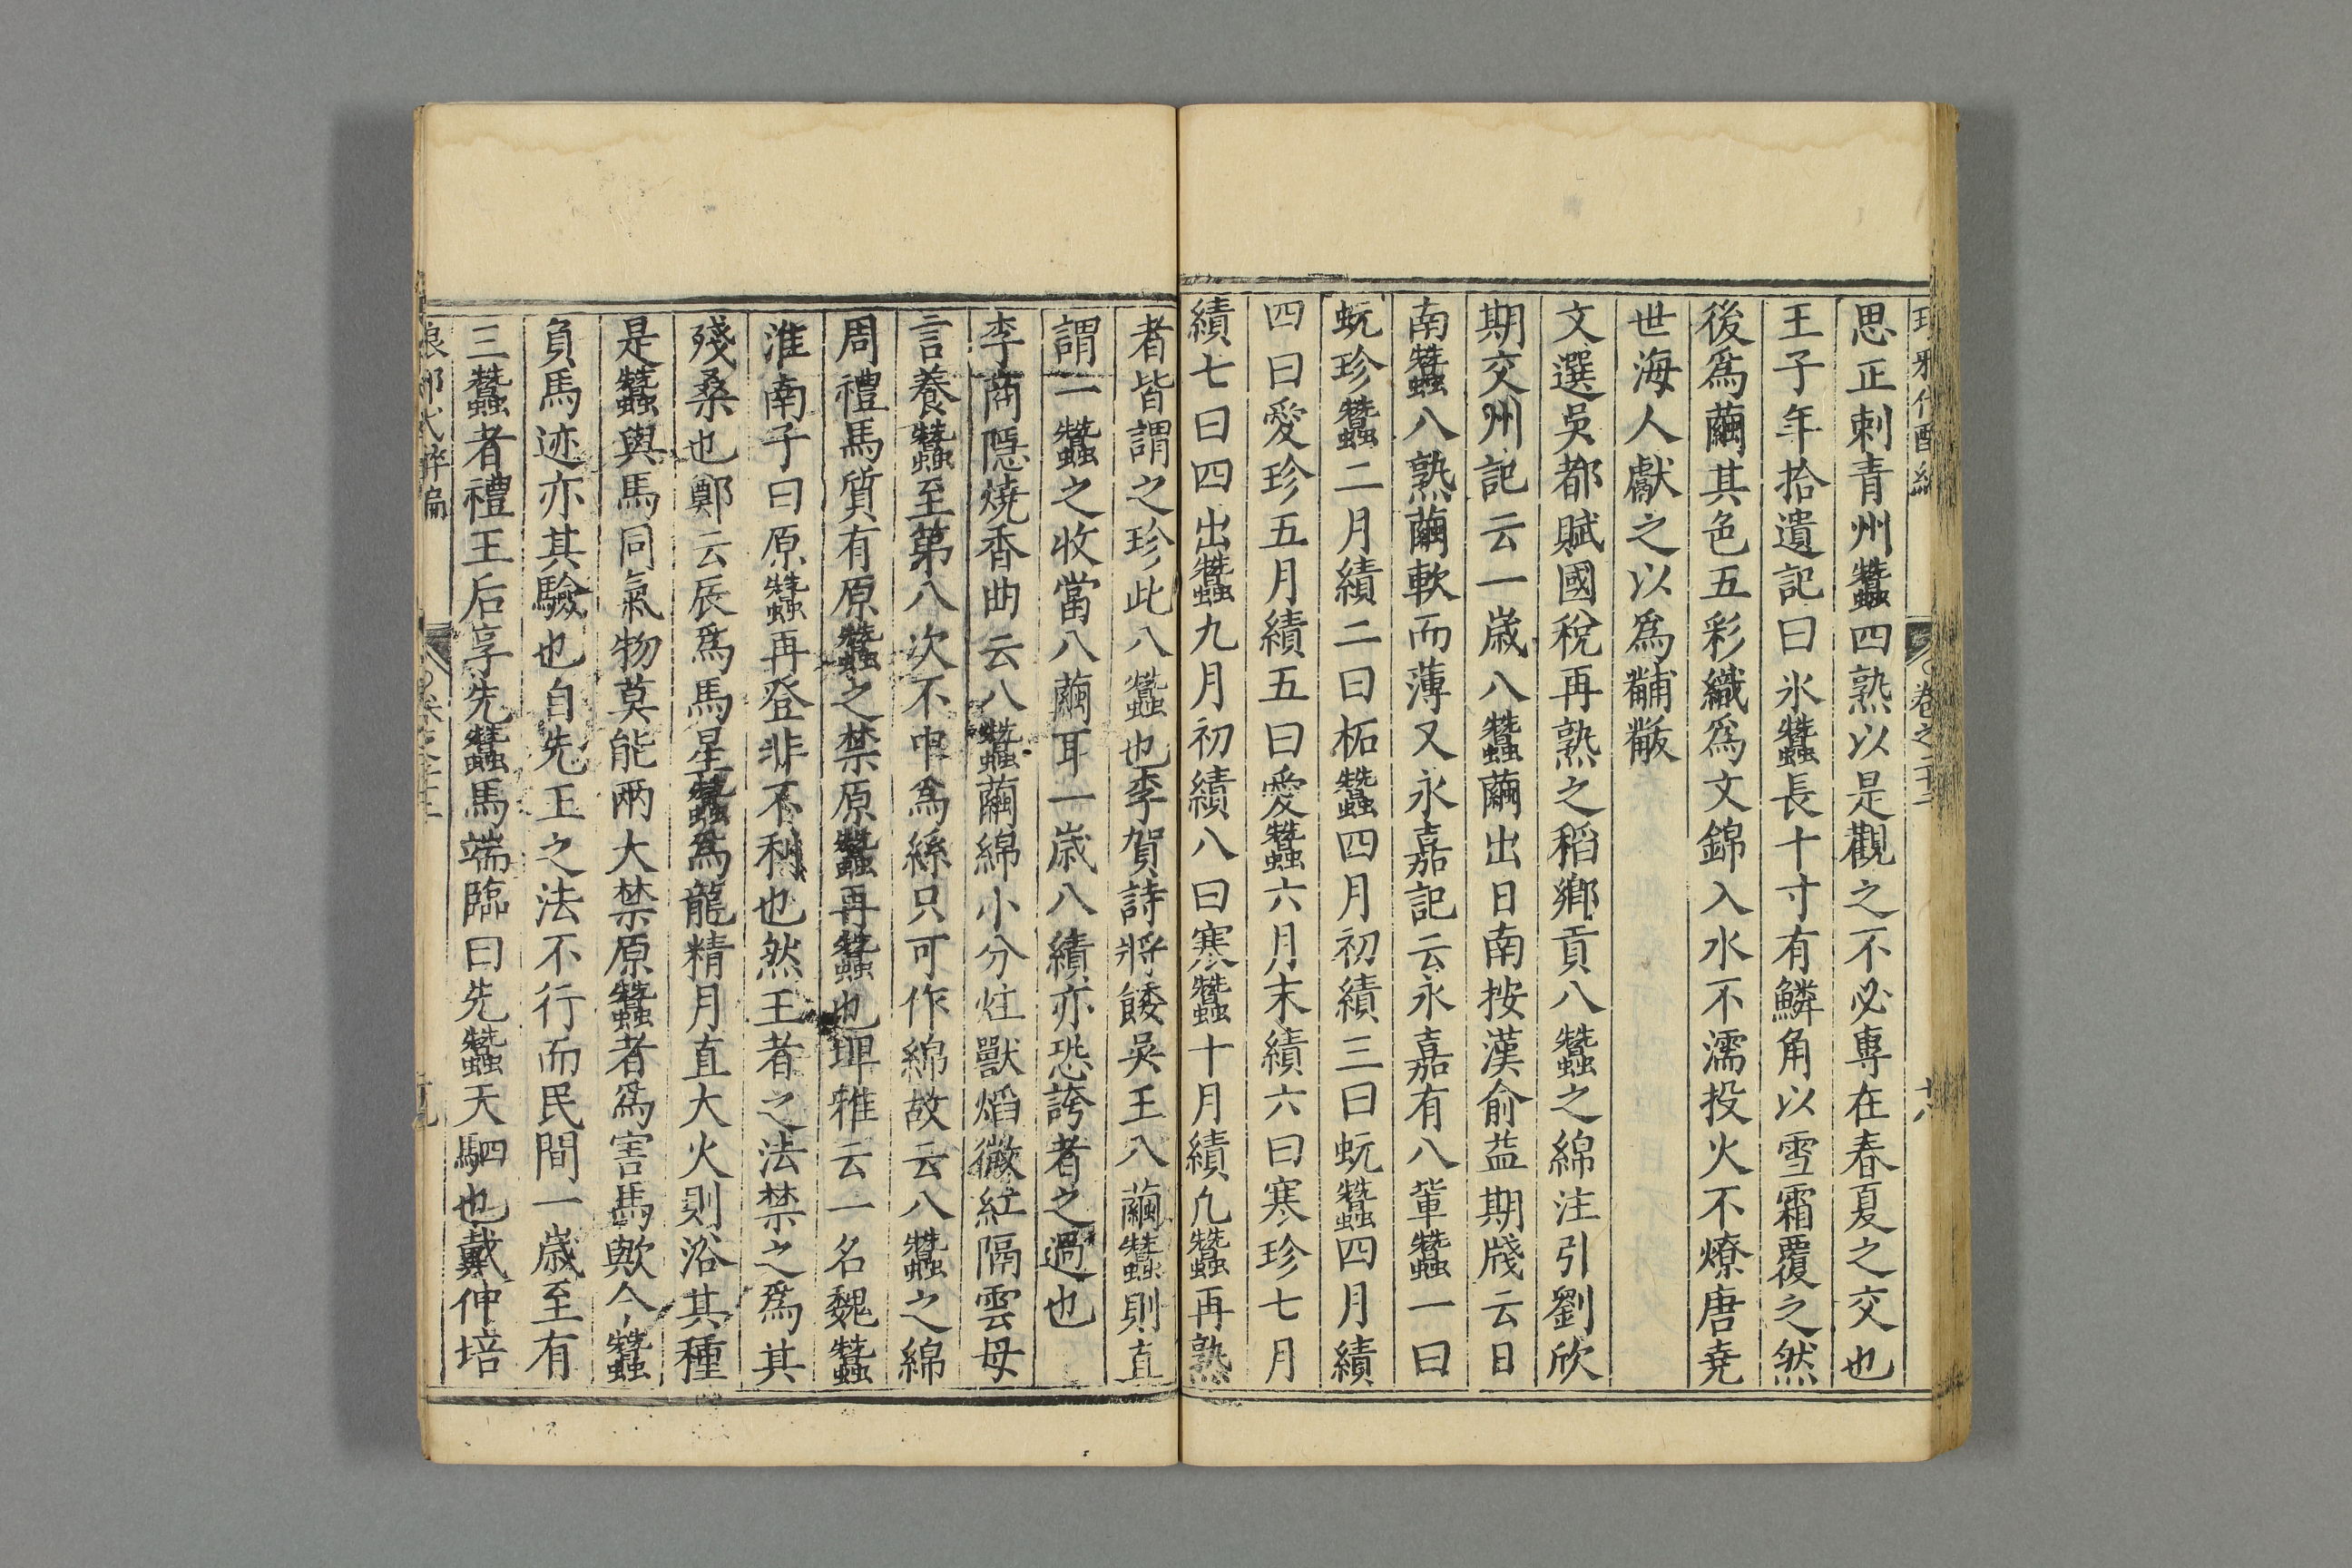 卷之二十二
十八
思正刺青州蠶四熟以是觀之不必專在春夏之交也
王子年拾遺記曰氷蠶長十寸有鱗角以雪霜覆之然
後爲繭其色五彩織爲文錦入水不濡投火不燎唐堯
世海人獻之以爲黼黻
文選吳都賦國稅再熟之稻鄉貢八蠶之綿注引劉欣
期交州記云一歳八蠶繭出日南按漢俞益期牋云日
南蠶八熟繭軟而薄又永嘉記云永嘉有八輩蠶一曰
蚖珍蠶二月績二曰柘蠶四月初績三曰蚖蠶四月績
四曰愛珍五月績五曰愛蠶六月末績六曰寒珍七月
績七曰四出蠶九月初績八曰寒蠶十月績凡蠶再熟
者皆謂之珍此八蠶也李賀詩將餧吳王八繭蠶則直
謂一蠶之收當八繭耳一歳八績亦恐誇者之過也
李商隱燒香曲云八蠶繭綿小分炷獸焰微紅隔雲母
言養蠶至第八次不中爲絲只可作綿故云八蠶之綿
周禮馬質有原蠶之禁原蠶再蠶也埤雅云一名魏蠶
淮南子曰原蠶再登非不利也然王者之法禁之爲其
殘桑也鄭云辰爲馬馬星蠶爲龍精月直大火則浴其種
是蠶與馬同氣物莫能兩大禁原蠶者爲害馬歟今蠶
負馬迹亦其驗也自先王之法不行而民間一歳至有
三蠶者禮王后享先蠶馬端臨曰先蠶天駟也戴仲培